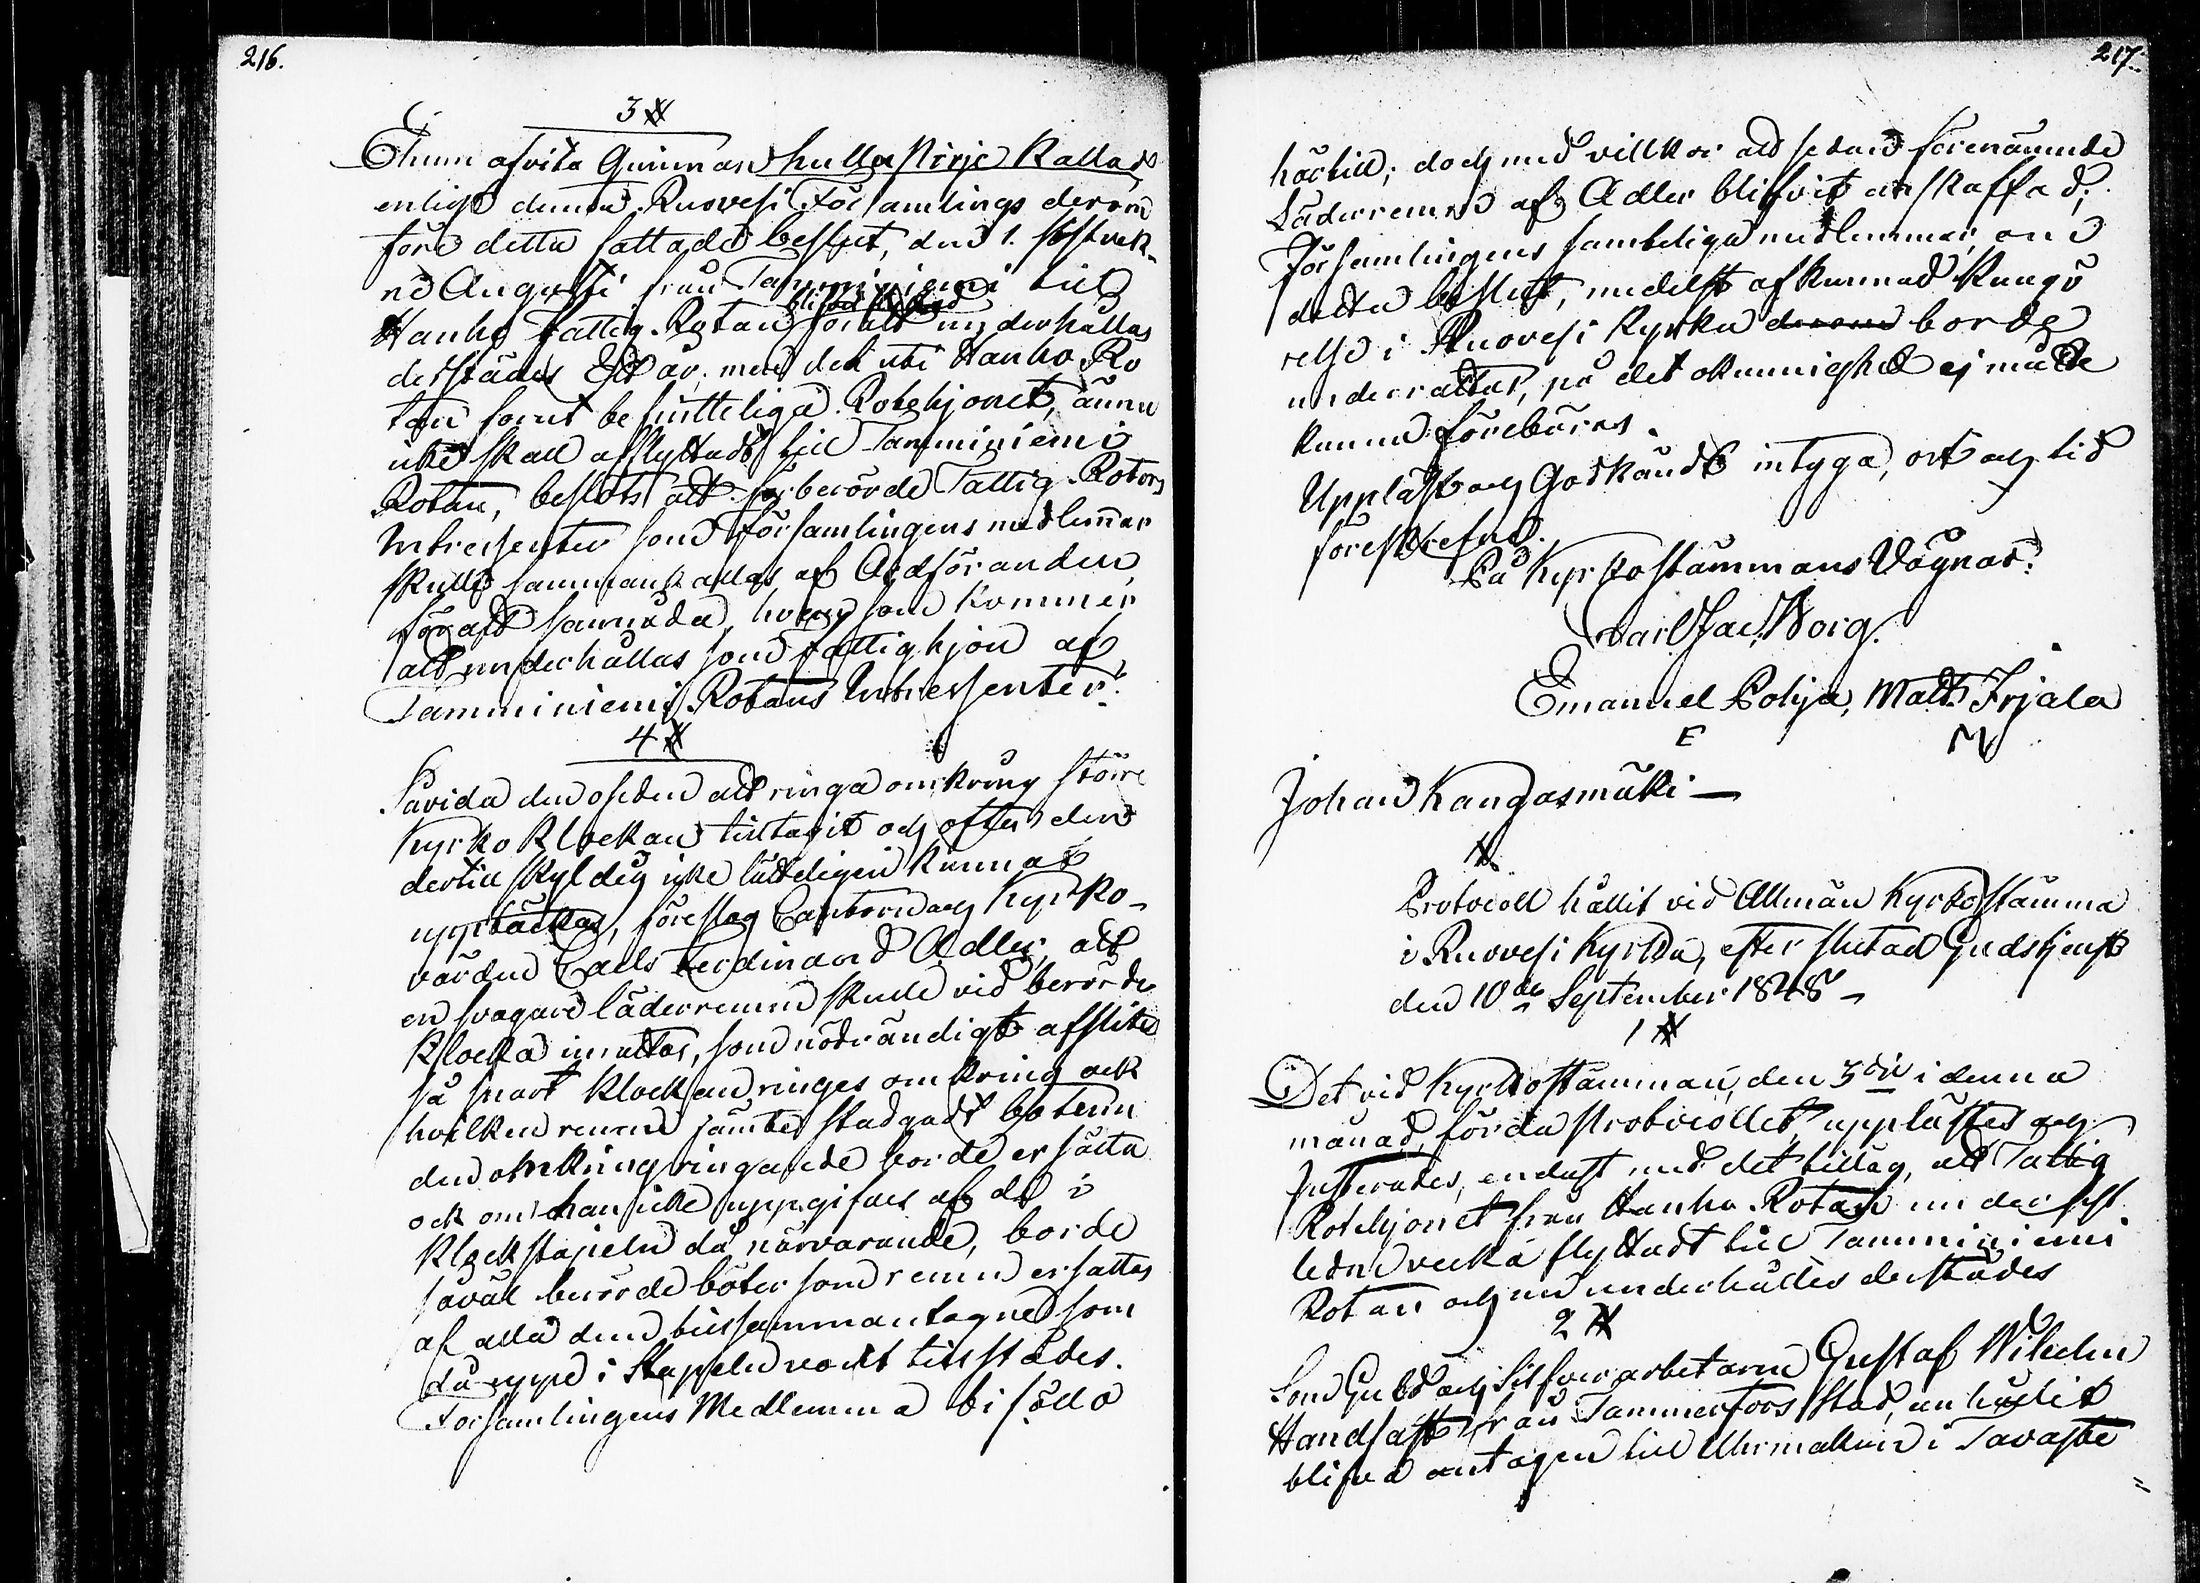 216.
3 §
Ehuru afvita Qvinnan hullu Pirjo Kallad
enligt denna Ruovesi Församlings derom
före detta fattade beslut, den 1. sistvek.
ne Augusti från Tamminiemi till
blifvit flyttad
Hanho Fattig-Rotan för att underhållas
derstädes Ett år, men det uti Hanho Ro
tan förut befintteliga Rotehjonet, ännu
icke skall afflyttadt till Tamminiemi
Rotan, beslöts att berörde Fattig-Rotors
Intressenter som Församlingens medlemmar
skulle sammankallas af Ordföranden
för att samråda, hvem som kommer
att underhållas som fattighjon af
Tamminiemi Rotans Intressenter.
4 §
Såvida den oseden att ringa omkring större
Kyrko Klockan tilltagit och ofta den
dertill skyldig icke lätteligen kunnat
upptäckas, föreslog Cantorn och Kyrko-
värden Carls Ferdinand Adler, att
en svagare läderremm skulle vid berörde
Klocka inrättas, som nödvändigt afslites
så snart klockan ringes omkring ock
hvilken remm jämte stadgadt böterm
den omkringringande borde ersätta
ock om han icke uppgifves af de i
Klockstapeln då närvarande, borde
såväl berörde böter som remm ersättas
af alla dem tillsammantagne som
då uppe i Stapeln varit tillstädes.
Församlingens Medlemma biföllo
217.
härtill; dock med villkor att sedan förenämnde
Läderremm af Adler blifvit anskaffad;
Församlingens samteliga medlemmar, om
detta beslut, medelst afkunnad Kungö
relse i Ruovesi Kyrka borde
underrättas, på det okunnighet ej måtte
kunna förebäras.
Uppläst och Godkändt intyga, ort och tid
föreskrefne.
På Kyrkostämmans Vägnar:
Carl Jac. Borg.
Emanuel Pohja, Matts Irjala
E M
Johan Kangasmäki —
Protocoll hållit vid Allmän Kyrkostämma
i Ruovesi Kyrka, efter slutad Gudstjenst
den 10de September 1848 –
1 §
Det vid Kyrkostämman, den 3die i denna
månad, förda Protocollet upplästes och
Justerades, endast med det tillägg, att Fattig
Rotehjonet från Hanho Rotan under sist
ledne vecka flyttadt till Tamminiemi
Rotan och nu underhålles derstädes
2 §
Som Guld och Silfverarbetaren Gustaf Wilhelm
Handsaft från Tammerfors Stad, anhållit
blifva antagen till Uhrmakare i Tavaste
=